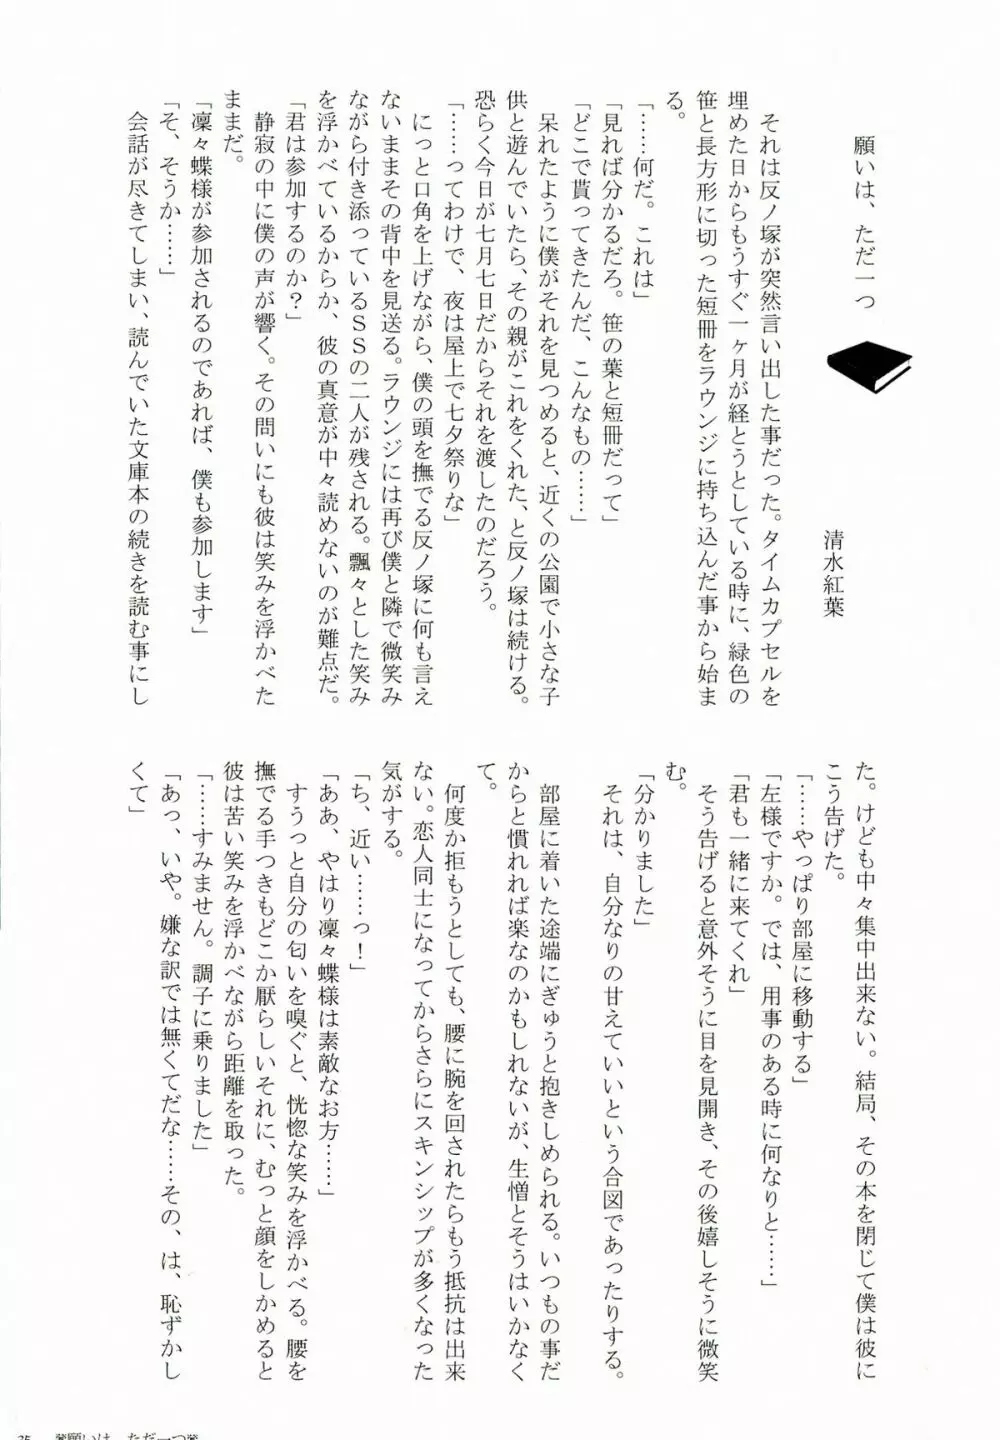 願いは、ただ一つ
清水紅葉
それは反ノ塚が突然言い出した事だった。タイムカプセルを
埋めた日からもうすぐ一ヶ月が経とうとしている時に、緑色の
笹と長方形に切った短冊をラウンジに持ち込んだ事から始ま
る。
「……何だ。これは」
「見れば分かるだろ。笹の葉と短冊だって」
「どこで貰ってきたんだ、こんなもの……」
呆れたように僕がそれを見つめると、近くの公園で小さな子
供と遊んでいたら、その親がこれをくれた、と反ノ塚は続ける。
恐らく今日が七月七日だからそれを渡したのだろう。
「……ってわけで、夜は屋上で七夕祭りな」
にっと口角を上げながら、僕の頭を撫でる反ノ塚に何も言え
ないままその背中を見送る。ラウンジには再び僕と隣で微笑み
ながら付き添っているＳＳの二人が残される。飄々とした笑み
を浮かべているからか、彼の真意が中々読めないのが難点だ。
「君は参加するのか？」
静寂の中に僕の声が響く。その問いにも彼は笑みを浮かべた
ままだ。
「凜々蝶様が参加されるのであれば、僕も参加します」
「そ、そうか……」
会話が尽きてしまい、読んでいた文庫本の続きを読む事にし
た。けども中々集中出来ない。結局、その本を閉じて僕は彼に
こう告げた。
「……やっぱり部屋に移動する」
「左様ですか。では、用事のある時に何なりと……」
「君も一緒に来てくれ」
そう告げると意外そうに目を見開き、その後嬉しそうに微笑
む。
「分かりました」
それは、自分なりの甘えていいという合図であったりする。
部屋に着いた途端にぎゅうと抱きしめられる。いつもの事だ
からと慣れれば楽なのかもしれないが、生憎とそうはいかなく
て。
何度か拒もうとしても、腰に腕を回されたらもう抵抗は出来
ない。恋人同士になってからさらにスキンシップが多くなった
気がする。
「ち、近い……っ！」
「ああ、やはり凜々蝶様は素敵なお方……」
すうっと自分の匂いを嗅ぐと、恍惚な笑みを浮かべる。腰を
撫でる手つきもどこか厭らしいそれに、むっと顔をしかめると
彼は苦い笑みを浮かべながら距離を取った。
「……すみません。調子に乗りました」
「あっ、いや。嫌な訳では無くてだな……その、は、恥ずかし
くて」
35 ※願いは、ただ一つ※